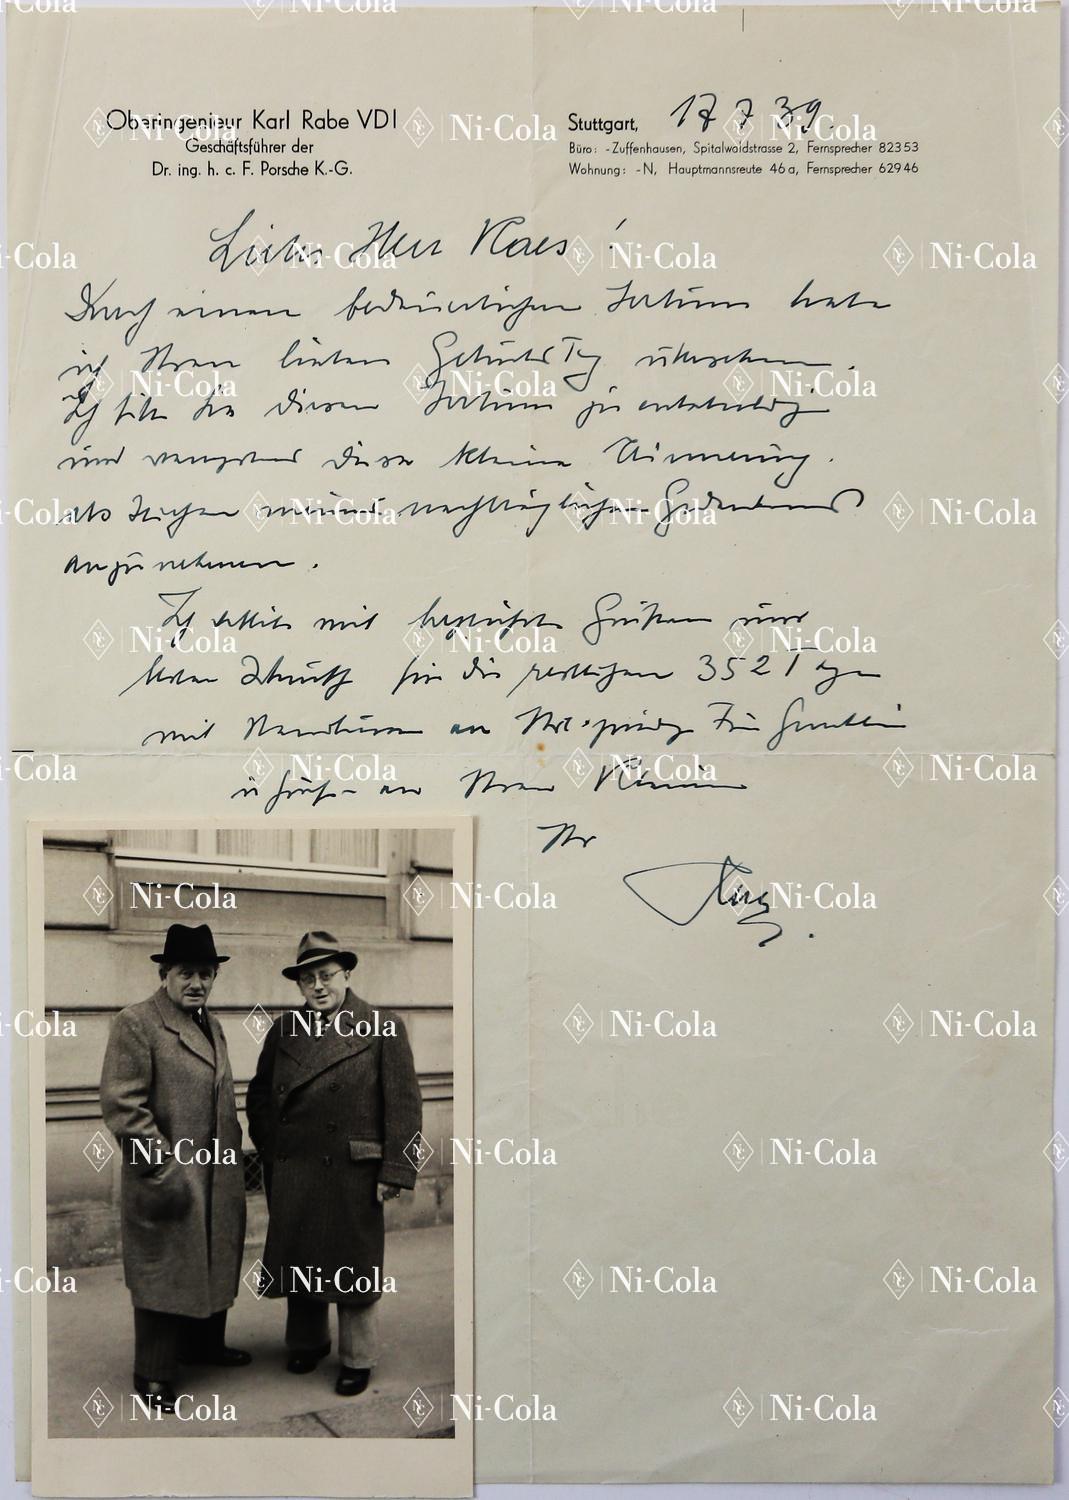 Oberingenieur Karl Rabe VDI
Geschäftsführer der
Dr. ing. h. c. F. Porsche K.-G.
Stuttgart, 17 7 39.
Büro: -Zuffenhausen, Spitalwaldstrasse 2, Fernsprecher 82353
Wohnung: -N, Hauptmannsreute 46a, Fernsprecher 62946
Lieber Herr Kaes!
Durch einen bedauerlichen Irrtum habe
ich Ihren lieben Geburtstag übersehen.
Ich bitte Sie diesen Irrtum zu entschuldigen
und diese kleine Erinnerung
als Zeichen meines nachträglichen Gedenkens
anzunehmen.
Ich mit Grüßen und
besten für die restlichen 352 Tage
mit an Ihre Frau Gemahlin
u Grüße an Ihren Kleinen
Ihr
Ni-Cola